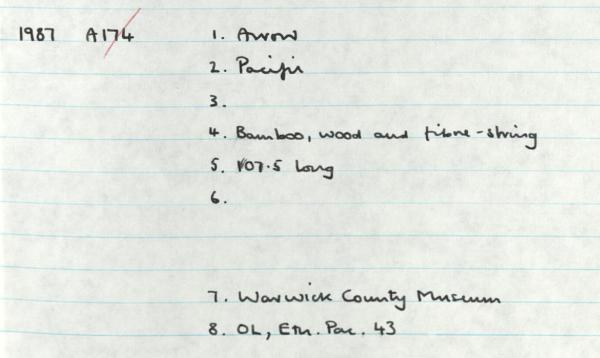 1987 A174 1. Arrow
2. Pacific
3.
4. Bamboo, wood and fibre-string
5. 107.5 long
6.
7. Warwick County Museum
8. OL, Eth. Pac. 43